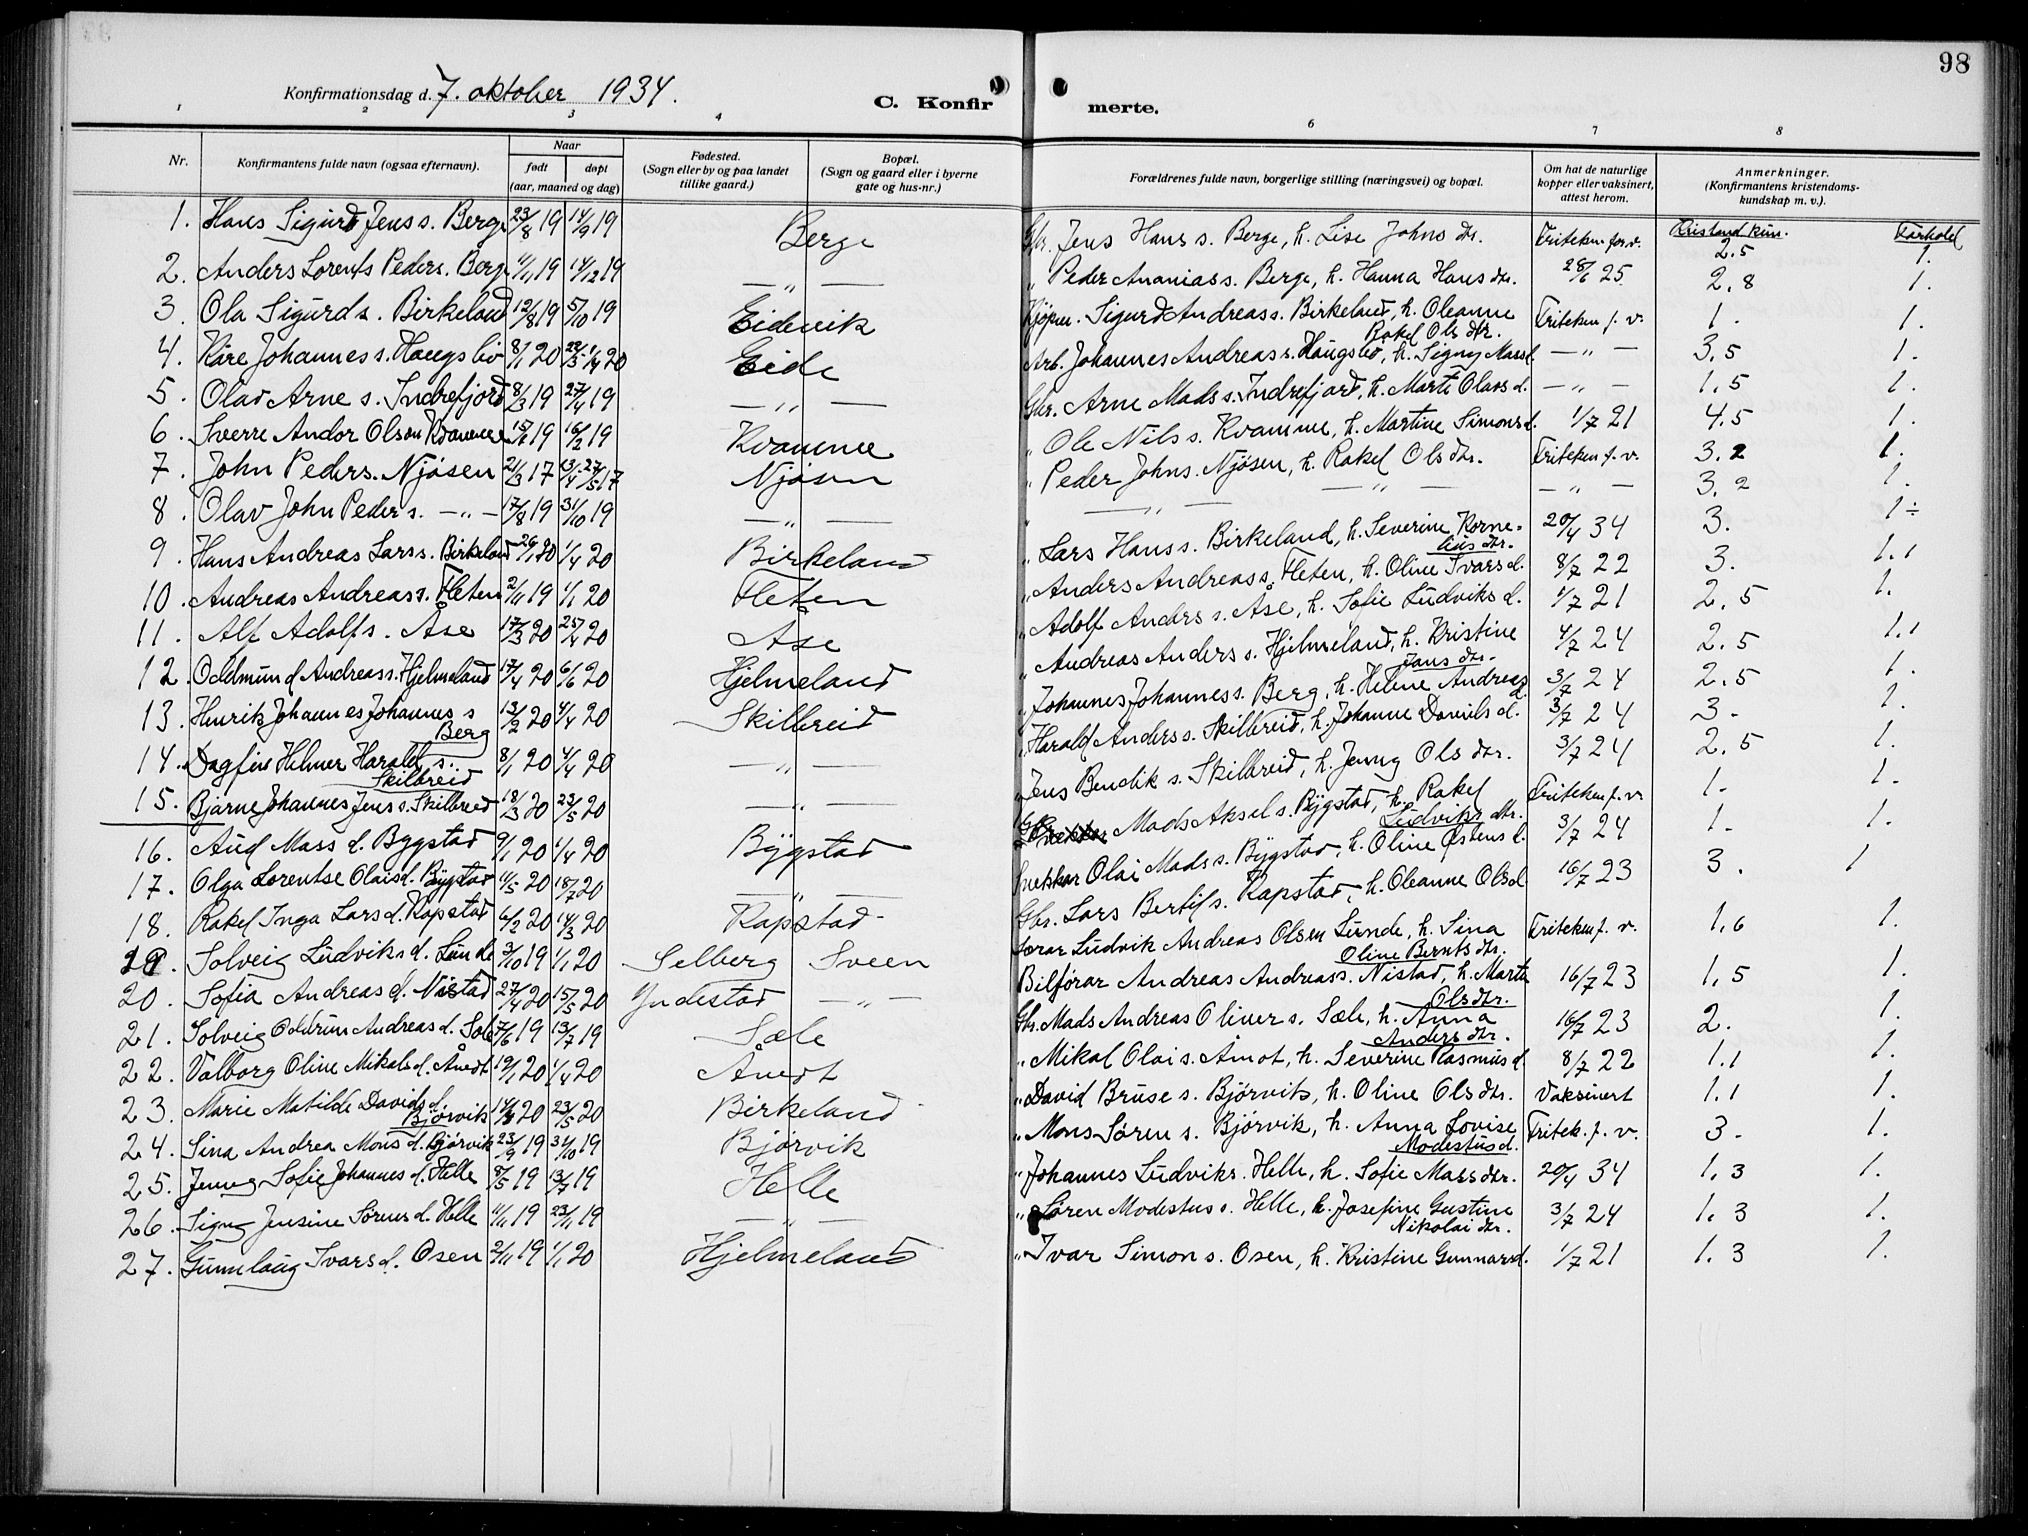 98
Konfirmationsdag d. 7. oktober 1934.
C. Konfir merte.
1 2 3 4 6 7 8
Nr. Konfirmantens fulde navn (ogsaa efternavn). Naar født døpt (aar, maaned og dag) Fødested. (Sogn eller by og paa landet tillike gaard.) Bopæl. (Sogn og gaard eller i byerne gate og hus-nr.) Forældrenes fulde navn, borgerlige stilling (næringsvei) og bopæl. Om hat de naturlige kopper eller vaksinert, attest herom. Anmerkninger. (Konfirmantens kristendoms- kundskap m. v.).
Kristend kun.
1. Hans Sigurd Jens s. Berge 23/8 19 14/9 19 Berge Gbr. Jens Hans s. Berge, h. Lise Johns dtr. Friteken for v. 2.5 1.
2. Anders Lorents Peders. Berge 4/11 19 14/12 19 —„— „ Peder Ananias s. Berge, h. Hanna Hans dtr. 28/6 25 2.8 1.
3. Ola Sigurd s. Birkeland 12/8 19 5/10 19 Eidevik Kjøpm. Sigurd Andreas s. Birkeland, h. Oleanne Rakel Ols dtr. Friteken f. v. 1. 1.
4. Kåre Johannes s. Haugsbø 8/1 20 Eide Arb. Johannes Andreas s. Haugsbø, h. Signy Mass d. —„— 3.5 1.
5. Olav Arne s. Indrefjord 8/3 19 27/4 19 —„— Gbr. Arne Mads s. Indrefjord, h. Marte Olavs d. —„— 1.5 1.
6. Sverre Andor Olson Kvamme 15/1 19 16/2 19 Kvamme „ Ole Nils s. Kvamme, h. Martine Simons d. 1/7 21 4.5 1.
7. John Peders. Njøsen 21/3 17 Njøsen „ Peder Johns. Njøsen, h. Rakel Ols dtr. Friteken f. v. 3.2 1.
8. Olav John Peder s. —„— 17/8 19 31/10 19 —„— —„— —„— —„— 3.2 1.
9. Hans Andreas Lars s. Birkeland 26/1 20 1/4 20 Birkeland „ Lars Hans s. Birkeland, h. Severine Korne- lius dtr. 20/4 34 3. 1÷
10. Andreas Andreas s. Fleten 2/11 19 1/1 20 Fleten „ Anders Andreas s. Fleten, h. Oline Ivars d. 8/7 22 3. 1.1
11. Alf Adolf s. Åse 17/3 20 25/4 20 Åse „ Adolf Anders s. Åse, h. Sofie Ludviks d. 1/7 21 2.5 1.
12. Oddmund Andreas s. Hjelmeland 17/4 20 6/6 20 Hjelmeland „ Andreas Anders s. Hjelmeland, h. Kristine Jans dtr. 4/7 24 2.5 1.1
13. Henrik Johannes Johannes s Berg 13/2 20 4/4 20 Skilbreid „ Johannes Johannes s. Berg, h. Helene Andreas d. 3/7 24 2.5 1.
14. Dagfin Helmer Harald s. Skilbreid 8/1 20 4/4 20 —„— „ Harald Anders s. Skilbreid, h. Johanne Daniels d. 3/7 24 3. 1.
15. Bjarne Johannes Jens s. Skilbreid 18/3 20 23/5 20 —„— „ Jens Bendik s. Skilbreid, h. Jenny Ols dtr. 3/7 24 2.5 1.
16. Aud Mass d. Bygstad 9/1 20 1/4 20 Bygstad Mads Aksel s. Bygstad, h. Rakel Ludviks dtr. Friteken f. v. 1. 1.
17. Olga Lorentse Olais d. Bygstad 11/5 20 18/7 20 —„— Snekkar Olai Mads s. Bygstad, h. Oline Østens d. 3/7 24 1. 1.
18. Rakel Inga Lars d. Rapstad 6/2 20 14/3 20 Rapstad Gbr. Lars Bertil s. Rapstad, h. Oleanne Ols d. 16/7 23 3. 1
19. Solveig Ludviks d. Lunde 3/10 19 1/1 20 Selberg Sveen Ludvik Andreas Olsen Lunde, h. Sina Oline Bernts dtr. Friteken f. v. 1.6 1.
20. Sofia Andreas d. Nistad 27/4 20 15/5 20 Yndestad —„— Bilførar Andreas Andreas s. Nistad, h. Marta Ols dtr. 16/7 23 1.5 1.
21. Solveig Oddrun Andreas d. Sæle 7/6 19 13/7 19 Sæle Gbr. Mads Andreas Oliver s. Sæle, h. Anna Anders dtr. 16/7 23 2. 1.
22. Valborg Oline Mikals d. Åmot 19/1 20 1/4 20 Åmot „ Mikal Olai s. Åmot, h. Severine Rasmus d. 8/7 22 1.1 1.
23. Marie Matilde Davids d. Bjørvik 14/3 20 23/5 20 Birkeland „ David Bruse s. Bjørvik, h. Oline Ols dtr. Vaksinert 1.1 1.
24. Sina Andrea Mons d. Bjørvik 23/9 19 31/10 19 Bjørvik „ Mons Søren s. Bjørvik, h. Anna Lovise Modestus d. Fritek. f. v. 3. 1.
25. Jenny Sofie Johannes d. Helle 8/5 19 13/7 19 Helle „ Johannes Ludviks. Helle, h. Sofie Mass dtr. 20/4 34 1.3 1.
26. Signy Jensine Sørens d. Helle 11/11 19 23/11 19 —„— „ Søren Modestus s. Helle, h. Josefine Gustine Nikolai dtr. 3/7 24 1.3 1.
27. Gunnlaug Ivars d. Osen 2/11 19 1/1 20 Hjelmeland „ Ivar Simon s. Osen, h. Kristine Gunnars d. 1/7 21 1.3 1.